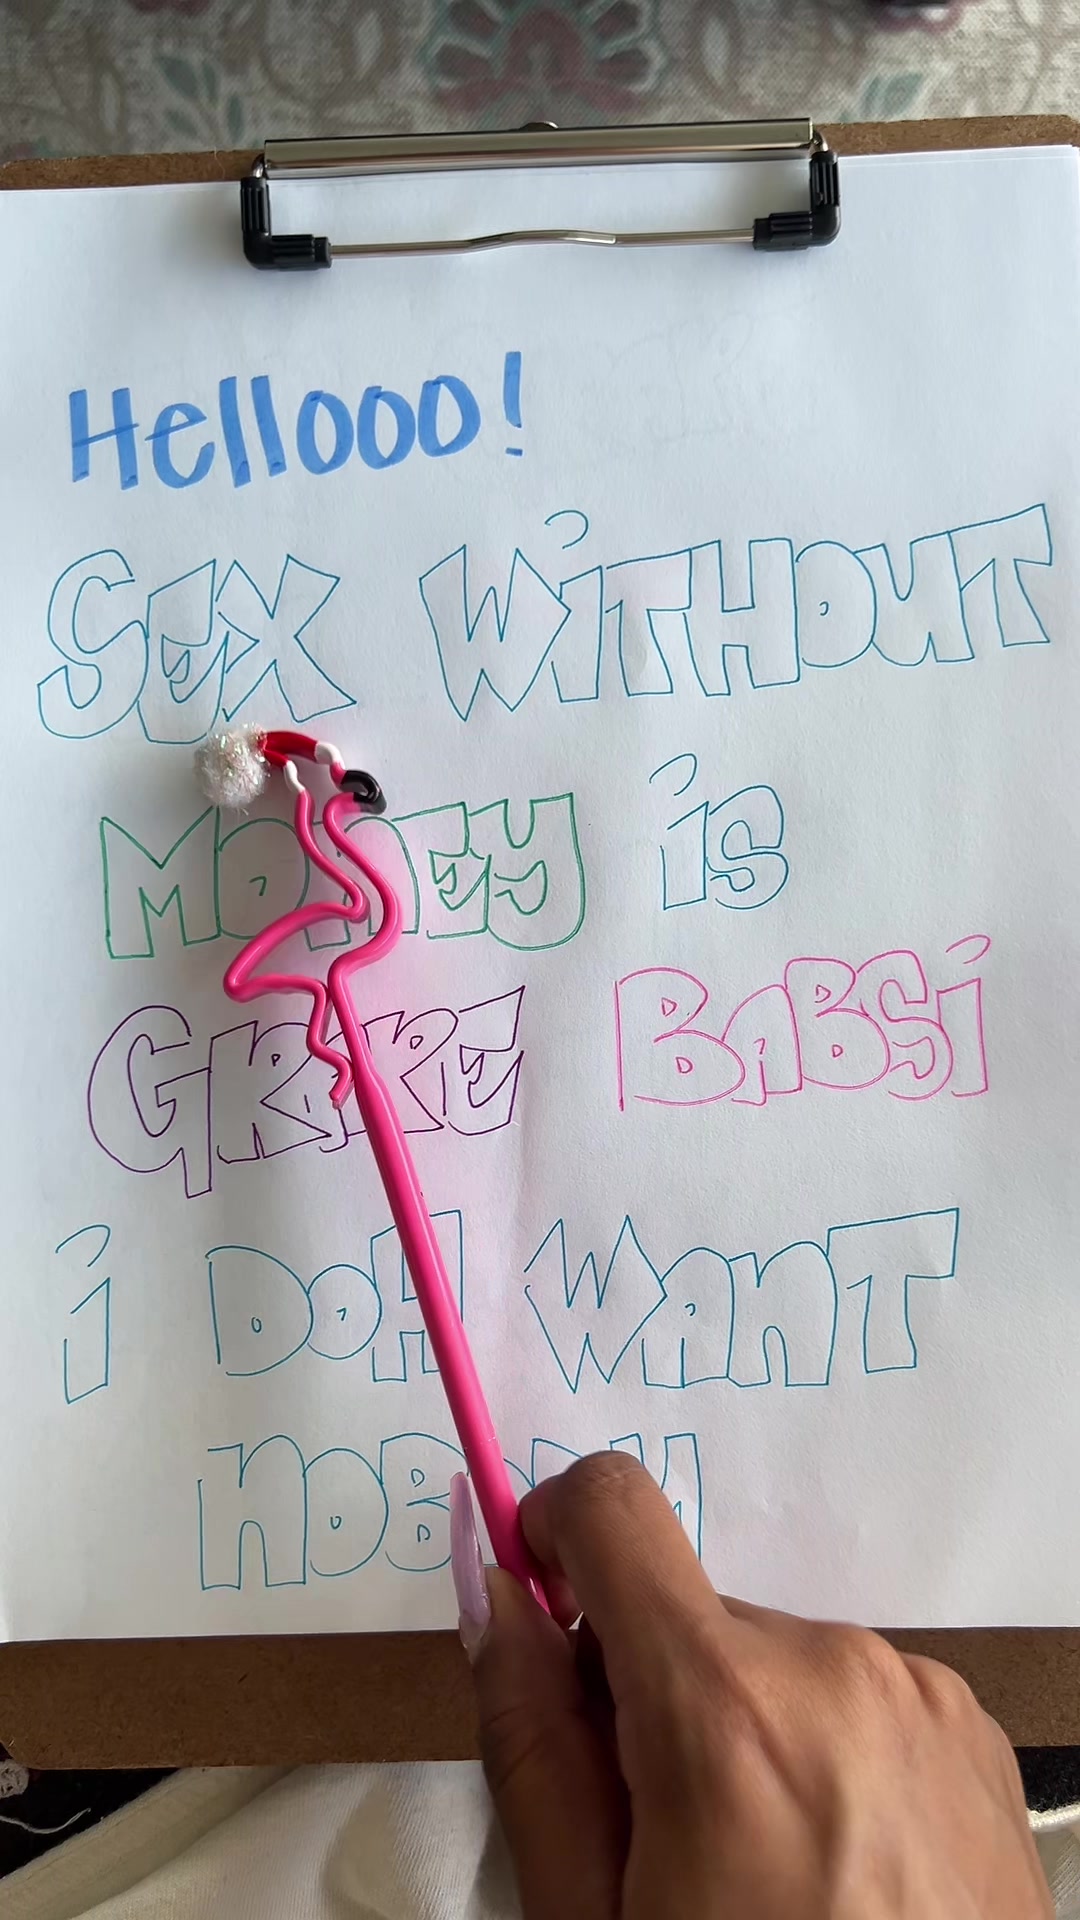 Hellooo!
SEX WiTHOUT
MONEY is
GRAPE BABSi
i DOH WANT
NOBODY